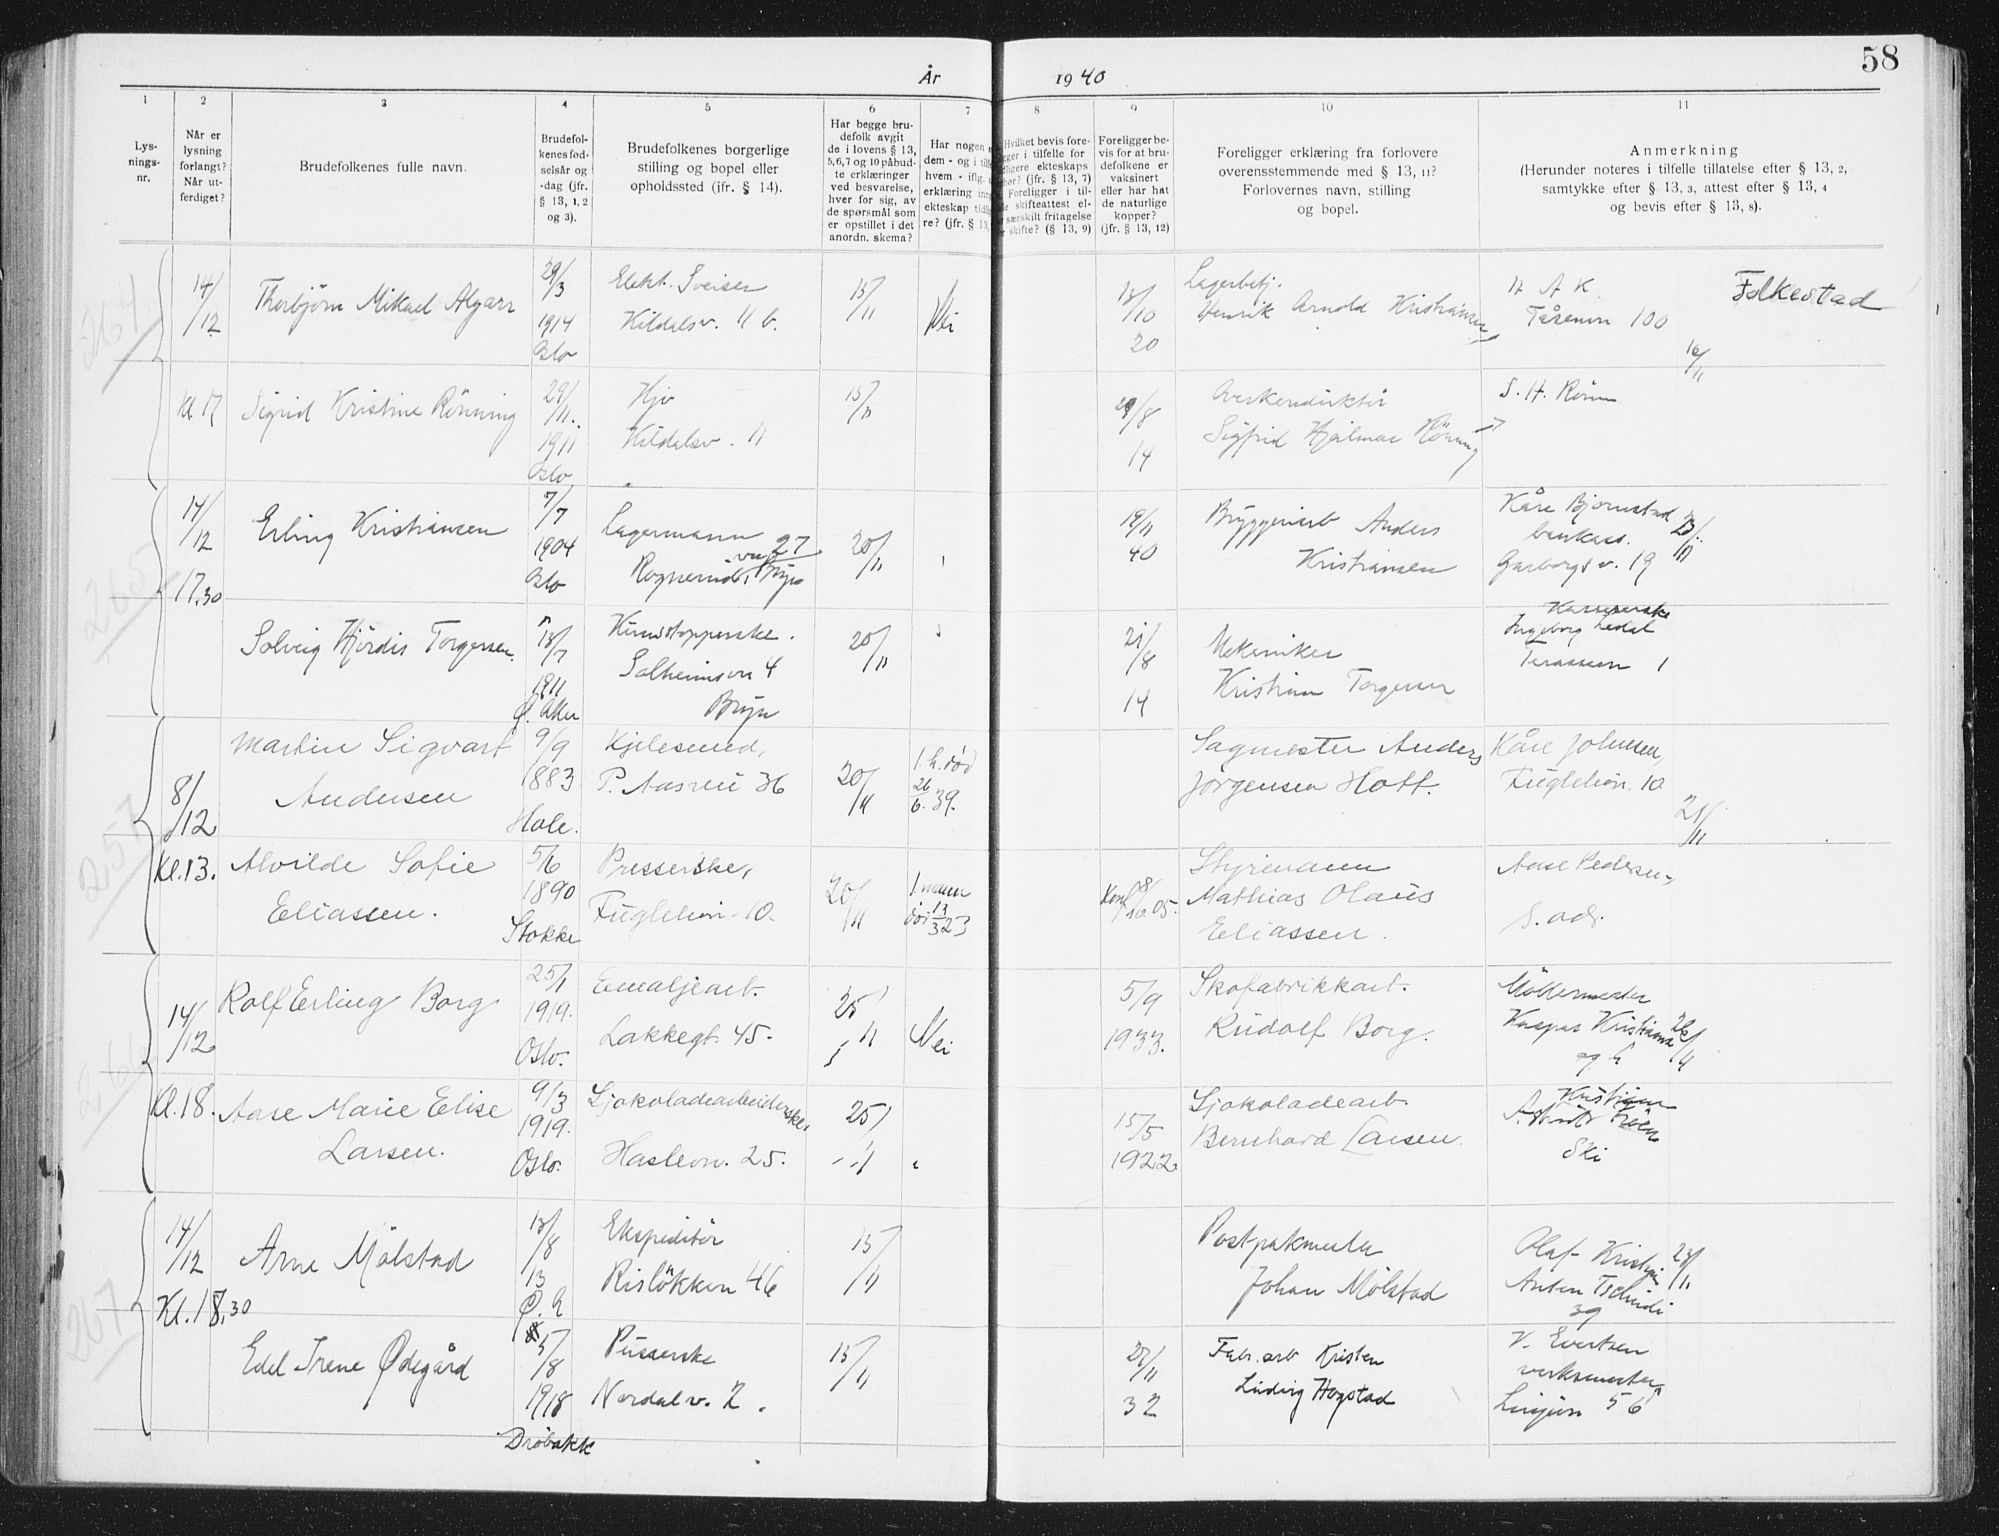 58
År 1940
1 2 3 4 5 6 7 8 9 10 11
Lys-
nings-
nr.
Når er
lysning
forlangt?
Når ut-
ferdiget?
Brudefolkenes fulle navn.
Brudefol-
kenes fød-
selsår og
-dag (jfr.
§ 13, 1, 2
og 3).
Brudefolkenes borgerlige
stilling og bopel eller
opholdssted (jfr. § 14).
Har begge bru-
defolk avgit
de i lovens § 13,
5, 6, 7 og 10 påbud-
te erklæringer
ved besvarelse,
hver for sig, av
de spørsmål som
er opstillet i det
anordn. skema?
Har nogen
dem - og i
hvem - iflg.
erklæring
ekteskap
re? (jfr. § 13,
Hvilket bevis fore-
i tilfelle for
ekteskaps
(jfr. § 13, 7)
Foreligger i til-
skifteattest el-
særskilt fritagelse
skifte? (§ 13, 9)
Foreligger be-
vis for at bru-
defolkene er
vaksinert
eller har hat
de naturlige
kopper?
(jfr. § 13, 12)
Foreligger erklæring fra forlovere
overensstemmende med § 13, 11?
Forlovernes navn, stilling
og bopel.
Anmerkning
(Herunder noteres i tilfelle tillatelse efter § 13, 2,
samtykke efter § 13, 3, attest efter § 13, 4
og bevis efter § 13, 8).
264
14/12
Thorbjørn Mikael
29/3
1914
Oslo
Elekt. Sveiser
Kildalsv. 11 b.
15/11
Nei
13/10
20
Lagerbetj.
Henrik Arnold Kristiansen
Tåsenvn 100
Folkestad
16/11
Kl 17
Sigrid Kristine Rönning
29/11.
1911
Oslo
Kildalsv. 11
15/11
29/8
14
Sigfrid Hjalmar Rönning
S. H. Rönn
265
14/12
17.30
Erling Kristiansen
7/7
1904
Oslo
Lagermann
27
Bryn
20/11
19/11
40
Bryggeriarb Anders
Kristiansen
Kåre Bjørnstad
bankass.
Garborgs v. 19
23/11
Solveig Hjördis Torgersen.
13/7
1911
Ø. Aker
Kunststopperske.
Solheimsvn 4
Bryn
20/11
21/8
14
Mekaniker
Kristian Torgersen
Kassererske
Ingeborg Ledal
Terassevn 1
257
8/12
Martin Sigvart
Andersen
9/9
1883
Hole.
Kjelesmed,
P. Aasvei 36
20/11
1. h. död
26/6. 39.
Sagmester Anders
Jörgensen Hoff.
Kåre Johnsen,
Fuglelivn. 10
21/11
Kl. 13.
Alvilde Sofie
Eliassen.
5/6
1890
Stokke
Presserske,
Fuglelivn. 10.
20/11
1. mann
död 13/3 23
Konf. 8/10.05.
Styrmann
Mathias Olaus
Eliassen.
Aase Pedersen,
s. adr.
266
14/12
Rolf Erling Borg
25/1
1919.
Oslo.
Emaljearb.
Lakkegt. 45.
25/11
Nei
5/9
1933.
Skofabrikkarb.
Rudolf Borg.
Möllermester
Kaspar Kristiansen
og
26/11
Kl. 18.
Aase Marie Elise
Larsen.
9/3
1919.
Oslo.
Sjokoladearbeiderske,
Haslevn. 25.
25/11
15/5
1922.
Sjokoladearb.
Bernhard Larsen.
Ski
267
14/12
Arne Mölstad
13/8
13
Ø. A
Ekspeditör
Rislökken 46
15/11
Postpakmester
Johan Mölstad
Olaf Kristian
Anton Tschudi
og
23/11
Kl. 18,30
Edel Irene Ødegård
5/8
1918
Dröbakk
Pusserske
Nordalv. 2.
15/11
27/11
32
Fabr. arb Kristen
Ludvig Hogstad
V. Evertsen
verksmester
56